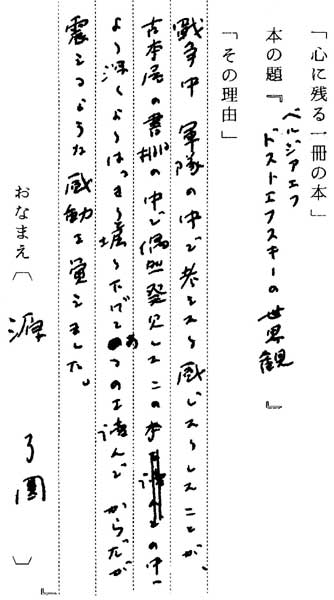 「心に残る一冊の本」
本の題『ベルジアエフ
ドストエフスキーの世界観』
「その理由」
戦争中 軍隊の中で考えたり感じたりしたことが、
古本屋の書棚の中で偶然発見したこの本の中に
より深くよりはっきり あるのを読んで からだが
震えるような感動を覚えました。
おなまえ〔 源 了圓 〕
』